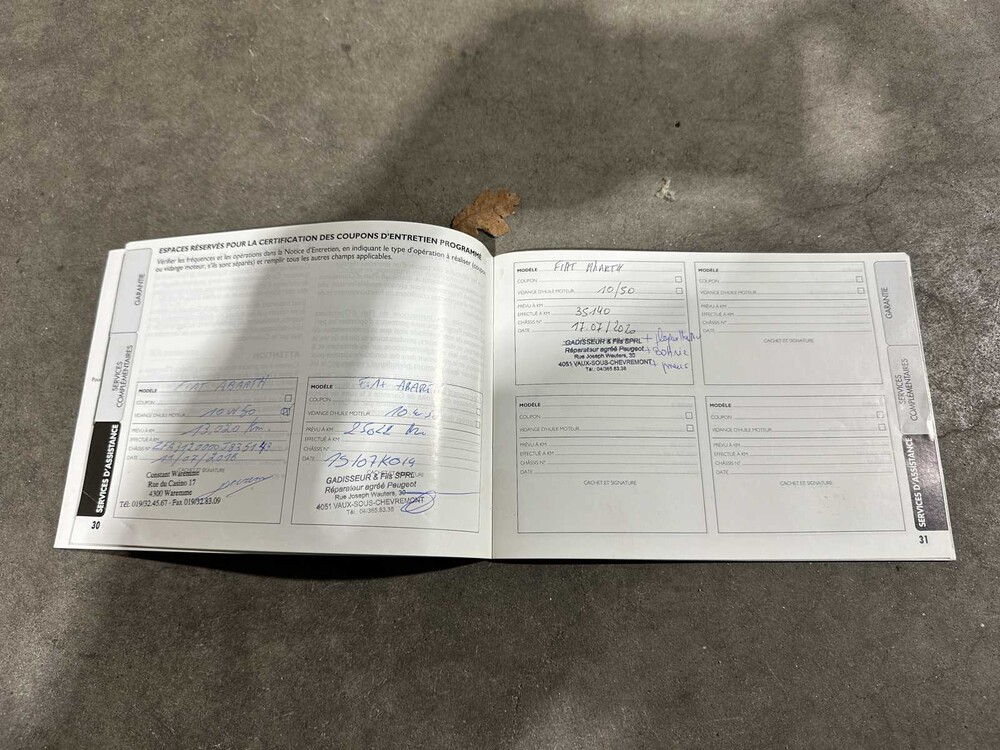 ESPACES RÉSERVÉS POUR LA CERTIFICATION DES COUPONS D'ENTRETIEN PROGRAMMÉ
Vérifier les fréquences et les opérations dans la Notice d'Entretien, en indiquant le type d'opération à réaliser (coupon
ou vidange moteur, s'ils sont séparés) et remplir tous les autres champs applicables.
GARANTIE
SERVICES COMPLÉMENTAIRES
SERVICES D'ASSISTANCE
MODÈLE FIAT ABARTH
COUPON
VIDANGE D'HUILE MOTEUR 10W50
PRÉVU À KM 13,020 Km.
EFFECTUÉ À KM
CHÂSSIS N°
DATE
CACHET ET SIGNATURE
Constant Waremme
Rue du Casino 17
4300 Waremme
Tél: 019/32.45.67 - Fax 019/32.83.09
30
MODÈLE FIAT ABARTH
COUPON
VIDANGE D'HUILE MOTEUR
PRÉVU À KM
EFFECTUÉ À KM
CHÂSSIS N°
DATE
GADISSEUR & Fils SPRL
Réparateur agréé Peugeot
Rue Joseph Wauters, 30
4051 VAUX-SOUS-CHEVREMONT
Tél.: 04/365.83.38
MODÈLE FIAT ABARTH
COUPON
VIDANGE D'HUILE MOTEUR 10/50
PRÉVU À KM
EFFECTUÉ À KM 35140
CHÂSSIS N°
DATE 17.07/2020
GADISSEUR & Fils SPRL
Réparateur agréé Peugeot
Rue Joseph Wauters, 30
4051 VAUX-SOUS-CHEVREMONT
Tél.: 04/365.83.38
+ pneus
MODÈLE
COUPON
VIDANGE D'HUILE MOTEUR
PRÉVU À KM
EFFECTUÉ À KM
CHÂSSIS N°
DATE
CACHET ET SIGNATURE
MODÈLE
COUPON
VIDANGE D'HUILE MOTEUR
PRÉVU À KM
EFFECTUÉ À KM
CHÂSSIS N°
DATE
CACHET ET SIGNATURE
MODÈLE
COUPON
VIDANGE D'HUILE MOTEUR
PRÉVU À KM
EFFECTUÉ À KM
CHÂSSIS N°
DATE
CACHET ET SIGNATURE
GARANTIE
SERVICES COMPLÉMENTAIRES
SERVICES D'ASSISTANCE
31